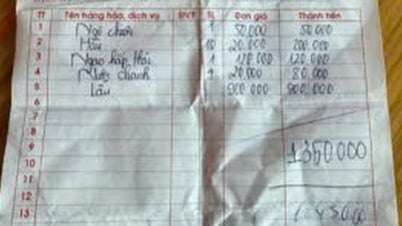 TT Tên hàng hóa, dịch vụ ĐVT SL Đơn giá Thành tiền
1 Ngô chiên 1 50,000 50,000
2 Hàu 10 20,000 200,000
3 Ngao hấp thái 1 120,000 120,000
4 Nước chanh 4 20,000 80,000
5 Lẩu 900,000 900,000
6
7
8
9 1350000
10
11
12
13